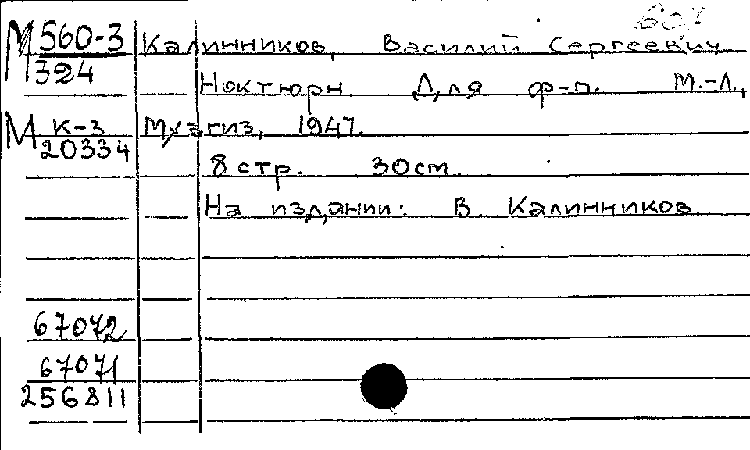 М 560-3 Калинников, Василий Сергеевич
324 Ноктюрн. Для ф-п. М.-Л.,
М К-3 Музгиз, 1947.
20334
8 стр. 30см.
На издании: В. Калинников
67072
67071
256811